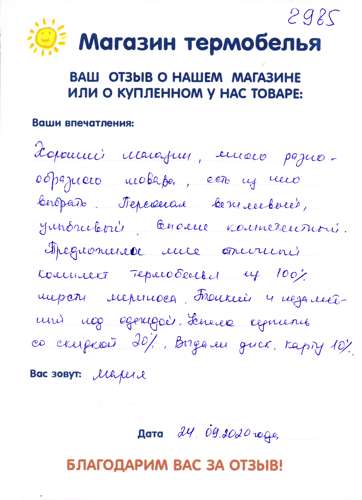 2985
Магазин термобелья
ВАШ ОТЗЫВ О НАШЕМ МАГАЗИНЕ
ИЛИ О КУПЛЕННОМ У НАС ТОВАРЕ:
Ваши впечатления:
Хороший магазин, много разно-
образного товара, есть из чего
выбрать. Персонал вежливый,
улыбчивый. Вполне компетентный.
Предложили мне отличный
комплект термобелья из 100%
шерсти мериноса. Тонкий и незамет-
ный под одеждой. Успела купить
со скидкой 20%. Выдали диск. карту 10%
Вас зовут: Мария
Дата 24.09.2020 года
БЛАГОДАРИМ ВАС ЗА ОТЗЫВ!